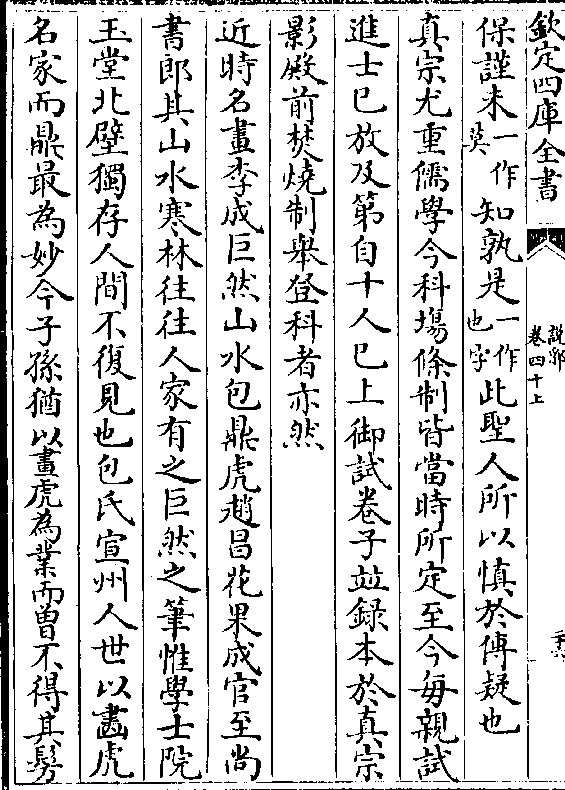 欽定四庫全書
說郛
卷四十上
保謹未一作莫知孰是一作也字此聖人所以慎於傳疑也
真宗尤重儒學今科塲條制皆當時所定至今每親試
進士已放及第自十人已上御試卷子並録本於真宗
影殿前焚燒制舉登科者亦然
近時名畫李成巨然山水包鼎虎趙昌花果成官至尚
書郎其山水寒林往往人家有之巨然之筆惟學士院
玉堂北壁獨存人間不復見也包氏宣州人世以畵虎
名家而鼎最為妙今子孫猶以畫虎為業而曽不得其髣